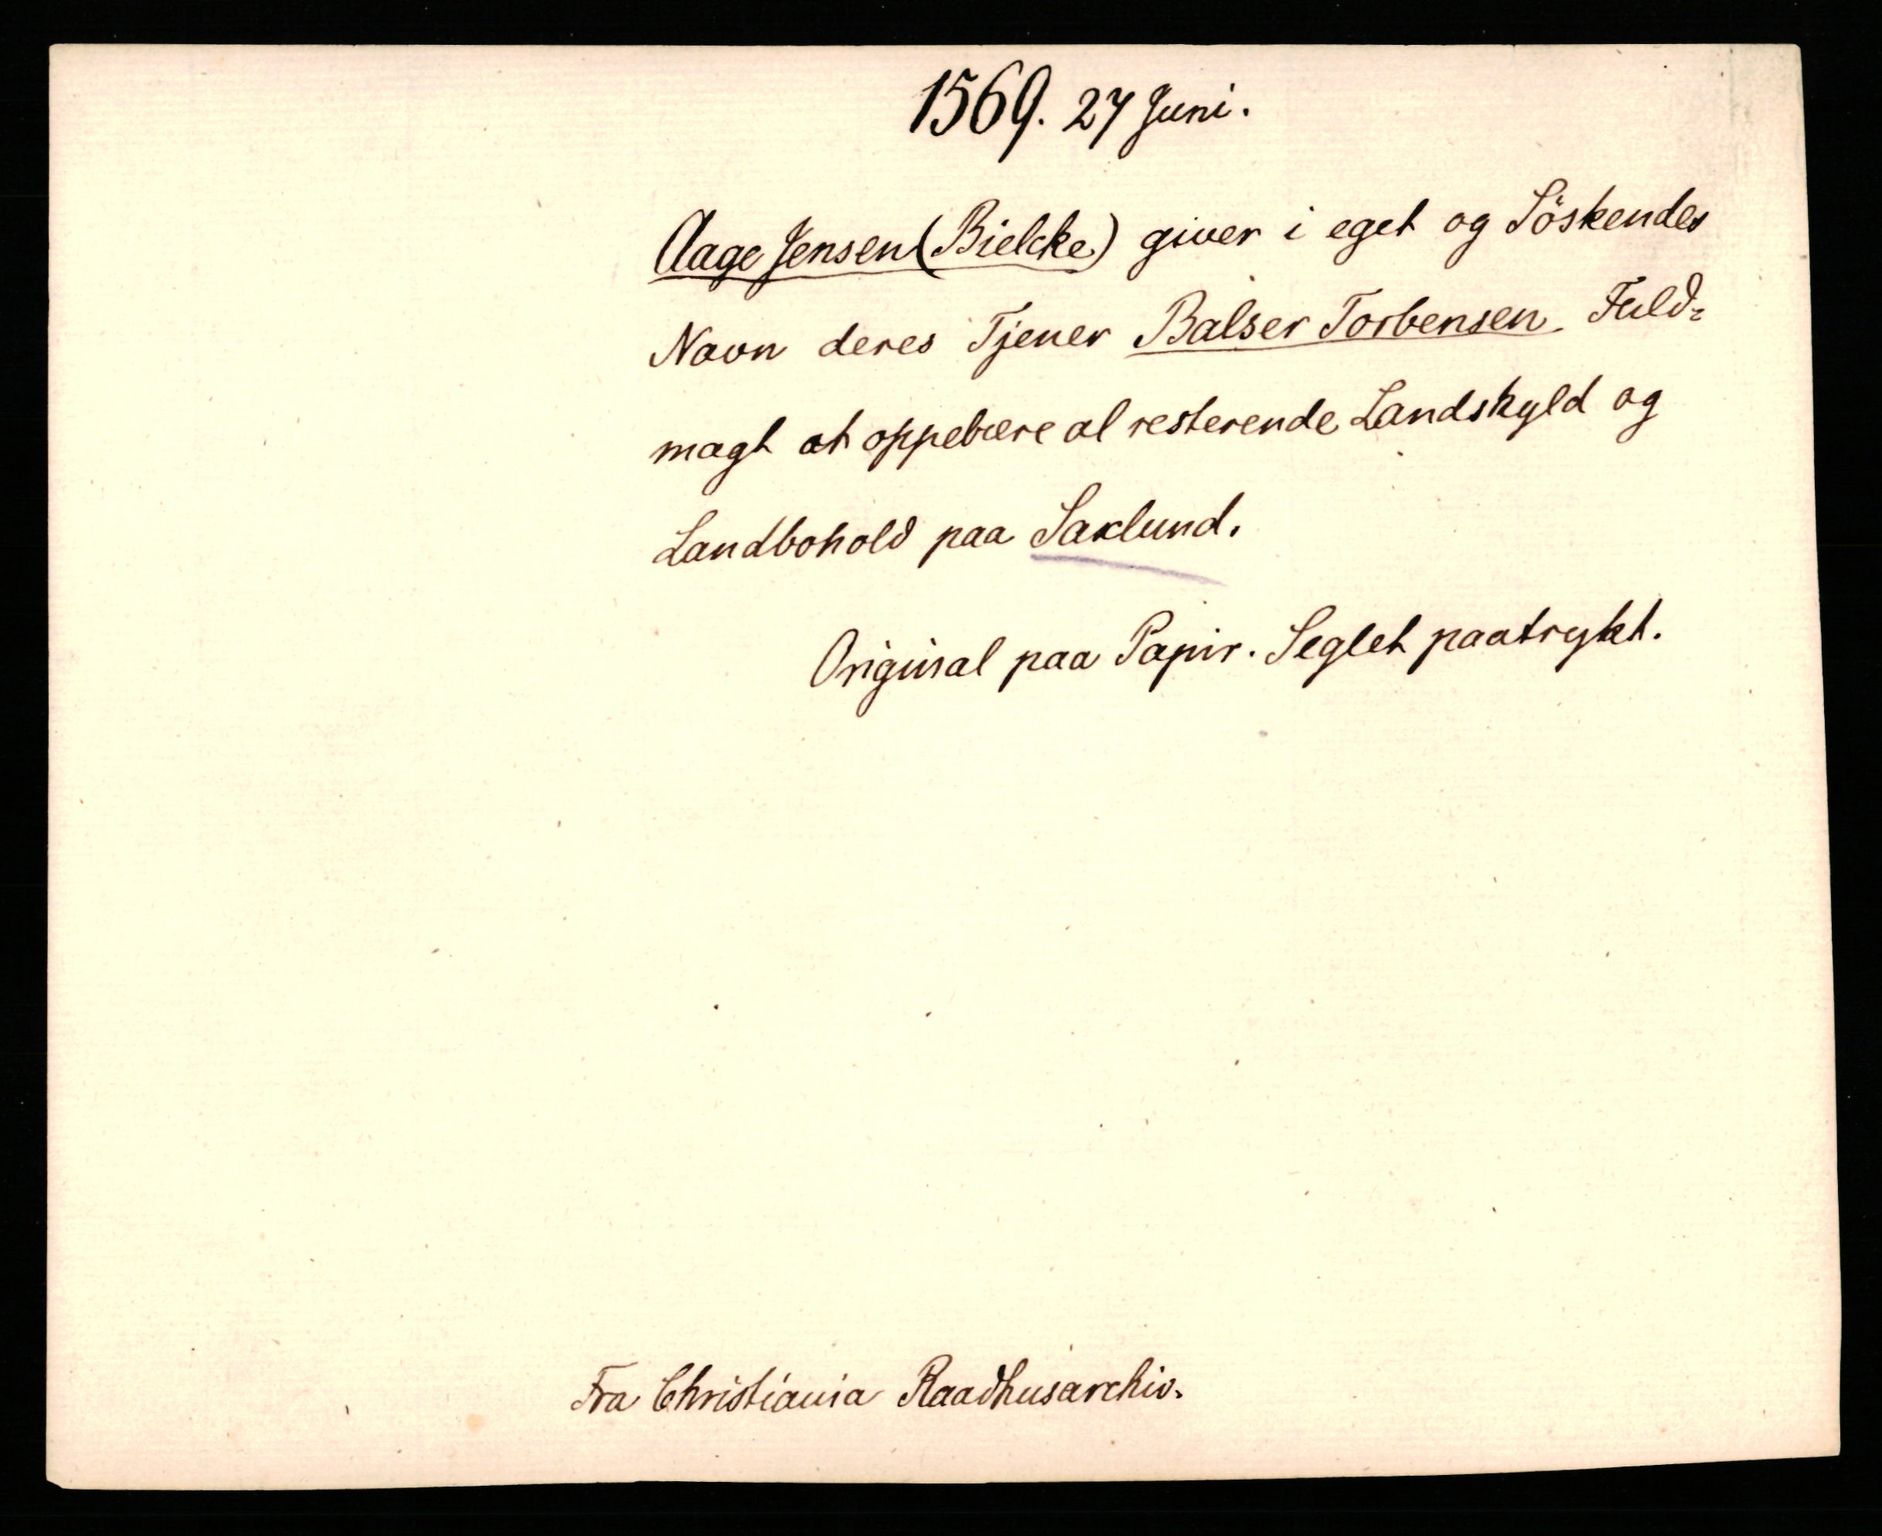 1569. 27 Juni.
Aage Jensen (Bielcke) giver i eget og Söskendes
Navn deres Tjener Balser Torbensen Fuld-
magt at oppebære al resterende Landskyld og
Landbohold paa Saxlund.
Original paa Papir. Seglet paatrykt.
Fra Christiania Raadhusarchiv.